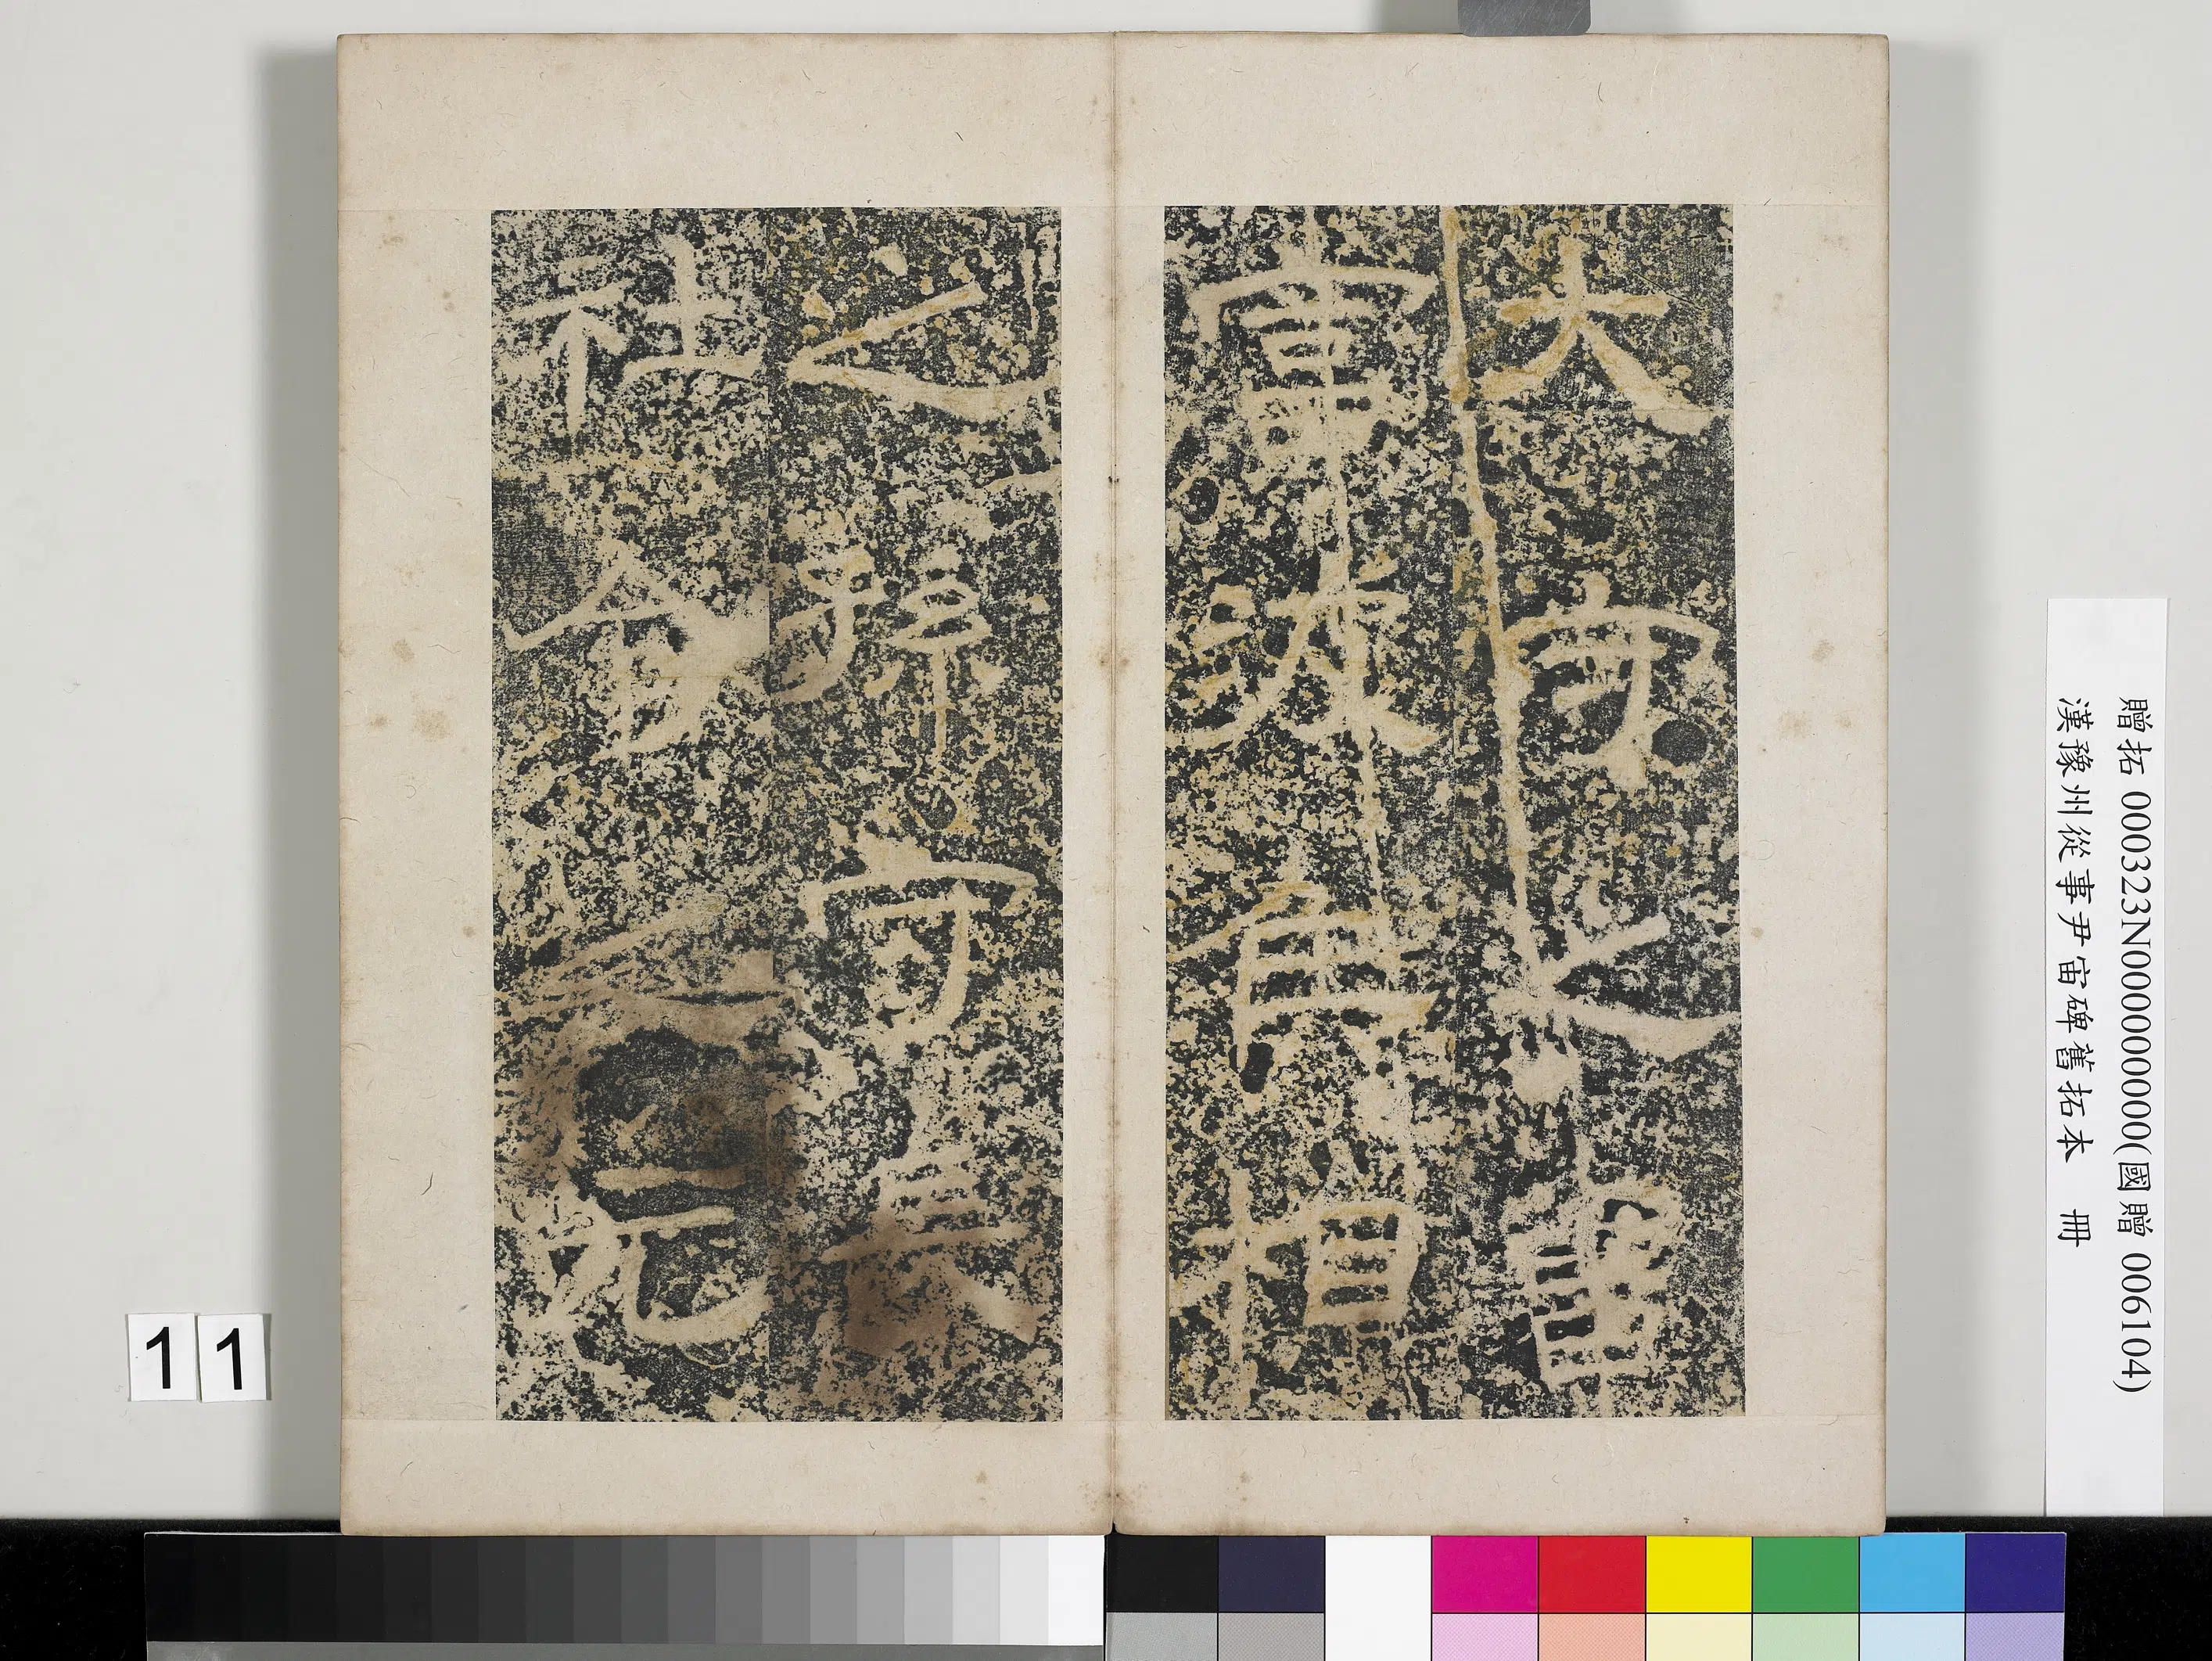 大守之曾
富波侯相
之孫守長
社令之元
贈拓 000323N000000000(國贈 006104)
漢豫州從事尹宙碑舊拓本 冊
11